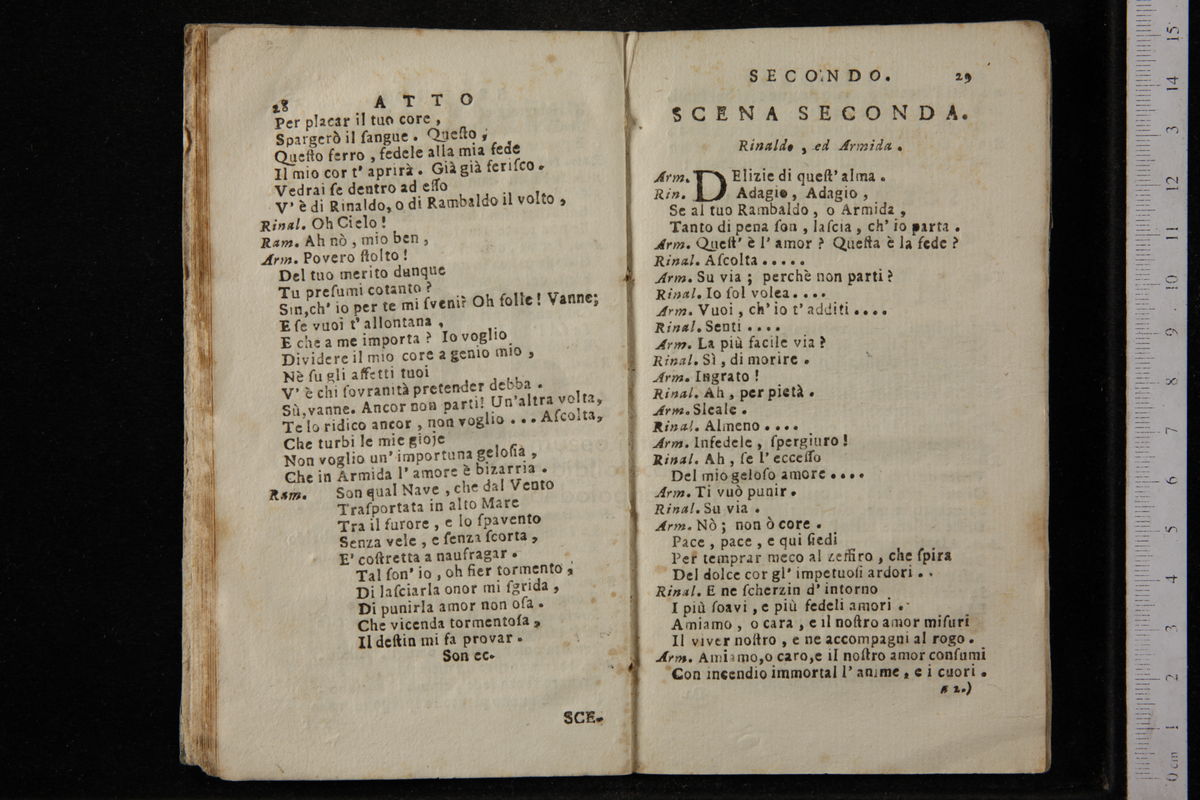 28 ATTO
Per placar il tuo core ,
Spargerò il ſangue . Queſto ,
Queſto ferro , fedele alla mia fede
Il mio cor t' aprirà . Già già feriſco .
Vedrai ſe dentro ad eſſo
V' è di Rinaldo, o di Rambaldo il volto ,
Rinal. Oh Cielo !
Ram. Ah nò , mio ben ,
Arm. Povero ſtolto !
Del tuo merito dunque
Tu preſumi cotanto ?
Sin, ch' io per te mi ſveni? Oh folle ! Vanne;
E ſe vuoi t' allontana ,
E che a me importa ? Io voglio
Dividere il mio core a genio mio ,
Nè ſu gli affetti tuoi
V' è chi ſovranità pretender debba .
Sù, vanne. Ancor non parti! Un'altra volta,
Te lo ridico ancor , non voglio . . . Aſcolta,
Che turbi le mie gioje
Non voglio un' importuna geloſia ,
Che in Armida l' amore è bizarria .
Ram. Son qual Nave , che dal Vento
Traſportata in alto Mare
Tra il furore , e lo ſpavento
Senza vele , e ſenza ſcorta ,
E' coſtretta a naufragar .
Tal ſon' io , oh fier tormento ,
Di laſciarla onor mi ſgrida ,
Di punirla amor non oſa .
Che vicenda tormentoſa ,
Il deſtin mi fa provar .
Son ec.
SCE-
SECONDO. 29
SCENA SECONDA.
Rinaldo , ed Armida .
Arm. DElizie di queſt' alma .
Rin. Adagio , Adagio ,
Se al tuo Rambaldo , o Armida ,
Tanto di pena ſon , laſcia , ch' io parta .
Arm. Queſt' è l' amor ? Queſta è la fede ?
Rinal. Aſcolta . . . . .
Arm. Su via ; perchè non parti ?
Rinal. Io ſol volea . . . .
Arm. Vuoi , ch' io t' additi . . . .
Rinal. Senti . . . .
Arm. La più facile via ?
Rinal. Sì , di morire .
Arm. Ingrato !
Rinal. Ah , per pietà .
Arm. Sleale .
Rinal. Almeno . . . .
Arm. Infedele , ſpergiuro !
Rinal. Ah , ſe l' ecceſſo
Del mio geloſo amore . . . .
Arm. Ti vuò punir .
Rinal. Su via .
Arm. Nò ; non ò core .
Pace , pace , e qui ſiedi
Per temprar meco al zeffiro , che ſpira
Del dolce cor gl' impetuoſi ardori . .
Rinal. E ne ſcherzin d' intorno
I più ſoavi , e più fedeli amori .
Amiamo , o cara , e il noſtro amor miſuri
Il viver noſtro , e ne accompagni al rogo .
Arm. Amiamo, o caro, e il noſtro amor conſumi
Con incendio immortal l' anime , e i cuori .
a 2.)